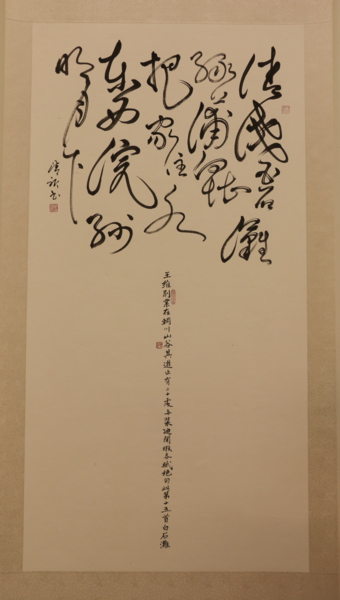 清淺白石灘
綠蒲向堪
把家住水
東西浣紗
明月下
書
王維別業在輞川山谷其遊止有二十處与裴迪閑暇各賦絕句此第十五首白石灘